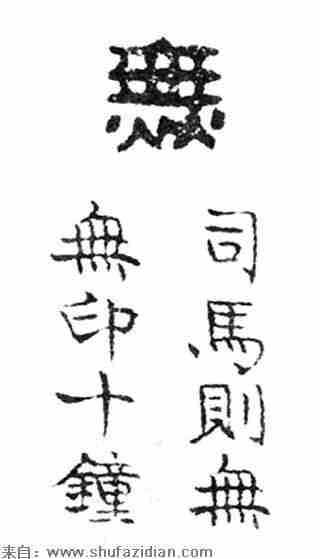 無
司馬則無
無印十鐘
来自：www.shufazidian.com